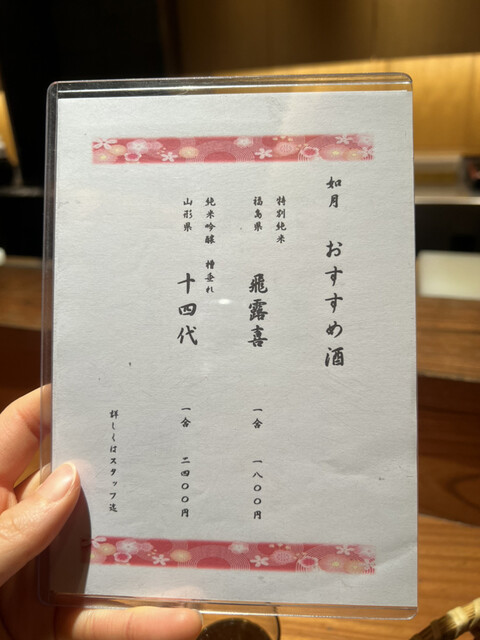 如月 おすすめ酒
特別純米
福島県 飛露喜 一合 一八〇〇円
純米吟醸 槽垂れ
山形県 十四代 一合 二四〇〇円
詳しくはスタッフ迄